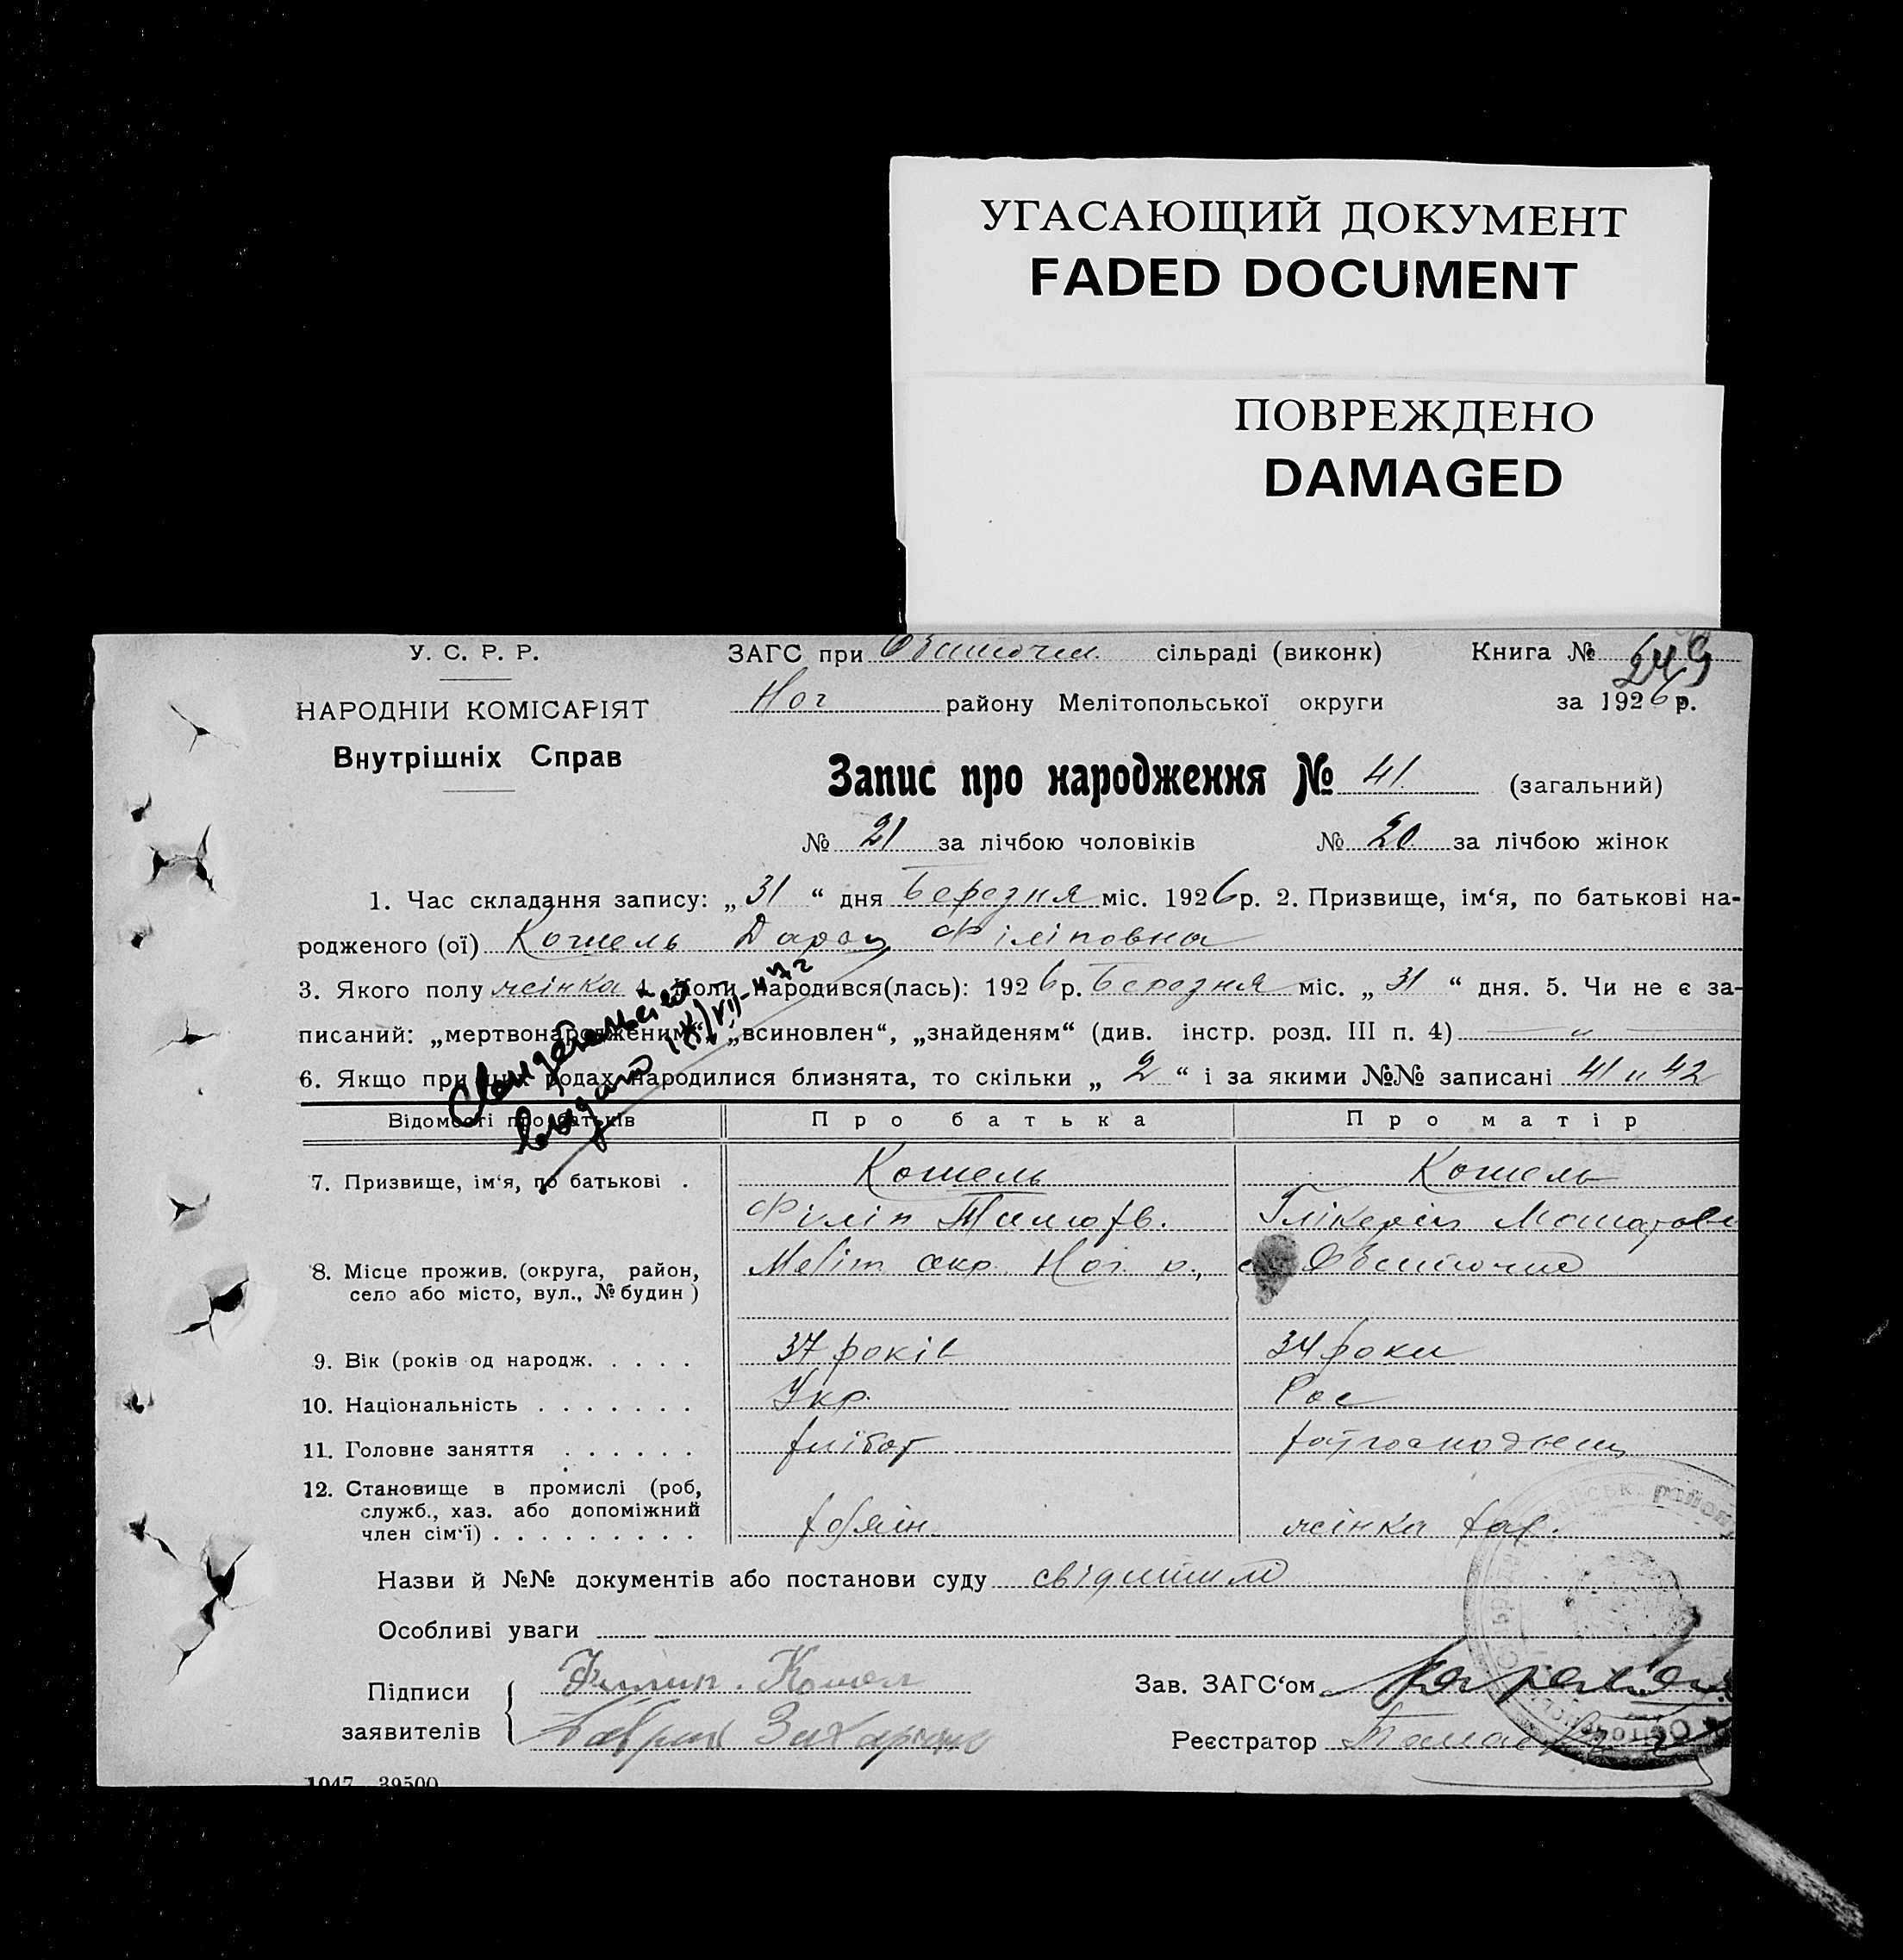 УГАСАЮЩИЙ ДОКУМЕНТ
FADED DOCUMENT
ПОВРЕЖДЕНО
DAMAGED
У. С. Р. Р.
ЗАГС при сільраді (виконк) Книга № 249
НАРОДНІЙ КОМІСАРІЯТ
Ног району Мелітопольської округи за 1926 р.
Внутрішніх Справ
Запис про народження № 41. (загальний)
№ 21 за лічбою чоловіків № 20 за лічбою жінок
1. Час складання запису: „31“ дня Березня міс. 1926 р. 2. Призвище, ім‘я, по батькові на-
родженого (ої) Кошель Філіповна
3. Якого полу жінка 4. Коли народився(лась): 1926 р. Березня міс. „31“ дня. 5. Чи не є за-
писаний: „мертвонародженим“, „всиновлен“, „знайденям“ (див. інстр. розд. III п. 4) — „ —
6. Якщо при цих родах народилися близнята, то скільки „2“ і за якими №№ записані 41 и 42
Свидетельство
выдано
Відомості про батьків
Про батька
Про матір
7. Призвище, ім‘я, по батькові . Кошель Кошель
Філіп Глікерія
8. Місце прожив. (округа, район, Меліт окр. Ног. р., с.
село або місто, вул., № будин)
9. Вік (років од народж. . . . . 37 років 34 роки
10. Національність . . . . . . . Укр. Рос
11. Головне заняття . . . . . . хлібор
12. Становище в промислі (роб,
служб., хаз. або допоміжний
член сім‘ї) . . . . . . . . . жінка хаз.
Назви й №№ документів або постанови суду
Особливі уваги
Підписи
заявителів
Филип. Кошел
Зав. ЗАГС‘ом
Реєстратор
1047 39500